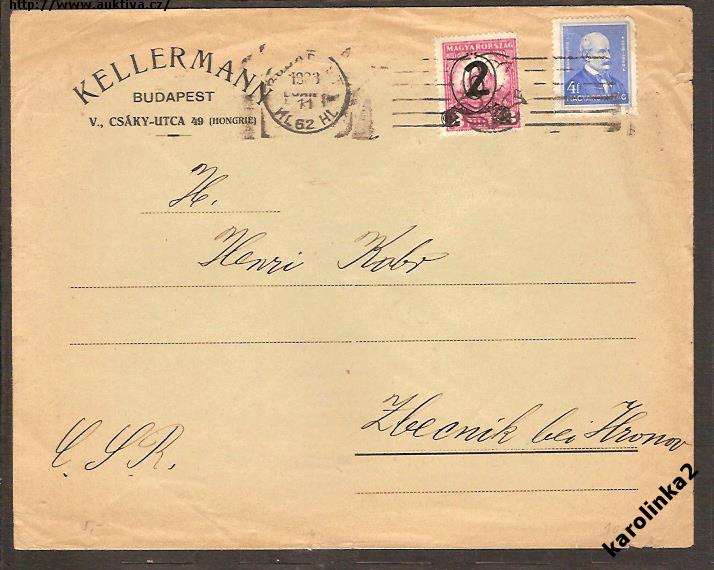 http://www.auktiva.cz/
KELLERMANN
BUDAPEST
V., CSÁKY-UTCA 49 (HONGRIE)
62
MAGYARORSZÁG
2
4f
MAGYARORSZÁG
H.
Henri Kobr
Zbecnik bei Hronov
Č. S. R.
karolinka2